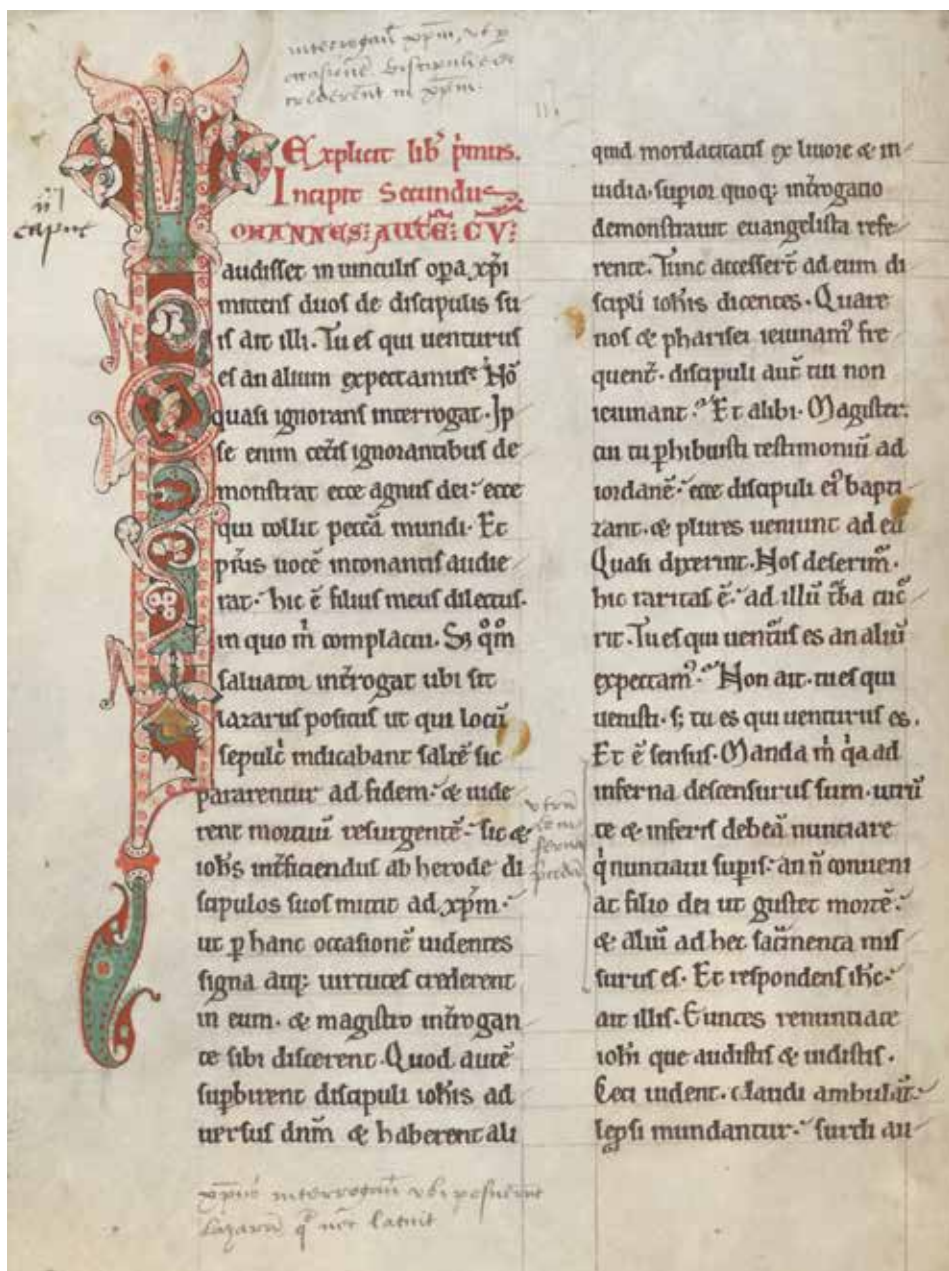 Explicit lib' pͥmus.
Incipit Secundus
OHANNES: AUTĒ: CŪ:
audisset in uinculis opa xp̄i
mittens duos de discipulis su
is ait illi. Tu es qui uenturus
es an alium expectamus? Nō
quasi ignorans interrogat. Ip
se enim cet̄is ignorantibus de
monstrat ecce agnus dei: ecce
qui tollit peccā mundi. Et
pͥus uocē intonantis audie
rat. hic ē filius meus dilectus.
in quo mͥ complacui. S; qͦm
saluator int̄rogat ubi sit
lazarus positus ut qui locū
sepulc̄ indicabant saltē sic
pararentur ad fidem. & uide
rent mortuū resurgentē. sic &
ioh̄s int̄ficiendus ab herode di
scipulos suos mittit ad xp̄m.
ut p hanc occasionē uidentes
signa atq; uirtutes crederent
in eum. & magistro int̄rogan
te sibi discerent. Quod autē
supbirent discipuli ioh̄is ad
uersus dn̄m & haberent ali
quid mordacitatis ex liuore & in
uidia. supior quoq; int̄rogatio
demonstrauit euangelista refe
rente. Tunc accesser̄t ad eum di
scipli ioh̄is dicentes. Quare
nos & pharisei ieiunam' fre
quent̄. discipuli aut̄ tui non
ieiunant. Et alibi. Magister.
cui tu phibuisti testimoniū ad
iordanē. ecce discipuli ei' bapti
zant. & plures ueniunt ad eū
Quasi dixerint. Nos deserim̄.
hic raritas ē. ad illū t̄ba cuc̄
rit. Tu es qui uent̄us es an aliū
expectam'. Non ait. tu es qui
uenisti. s; tu es qui uenturus es.
Et ē sensus. Manda mͥ qͥa ad
inferna descensurus sum. utrū
te & inferis debeā nunciare
qͥ nunciaui supis. an n̄ conueni
at filio dei ut gustet mortē.
& aliū ad hec sac̄menta mis
surus es. Et respondens ih̄c.
ait illis. Euntes renuntiate
ioh̄i que audistis & uidistis.
Ceci uident. claudi ambulāt.
lepsi mundantur. surdi au
caput
xp̄us interrogauit vbi posuerunt
Lazarū